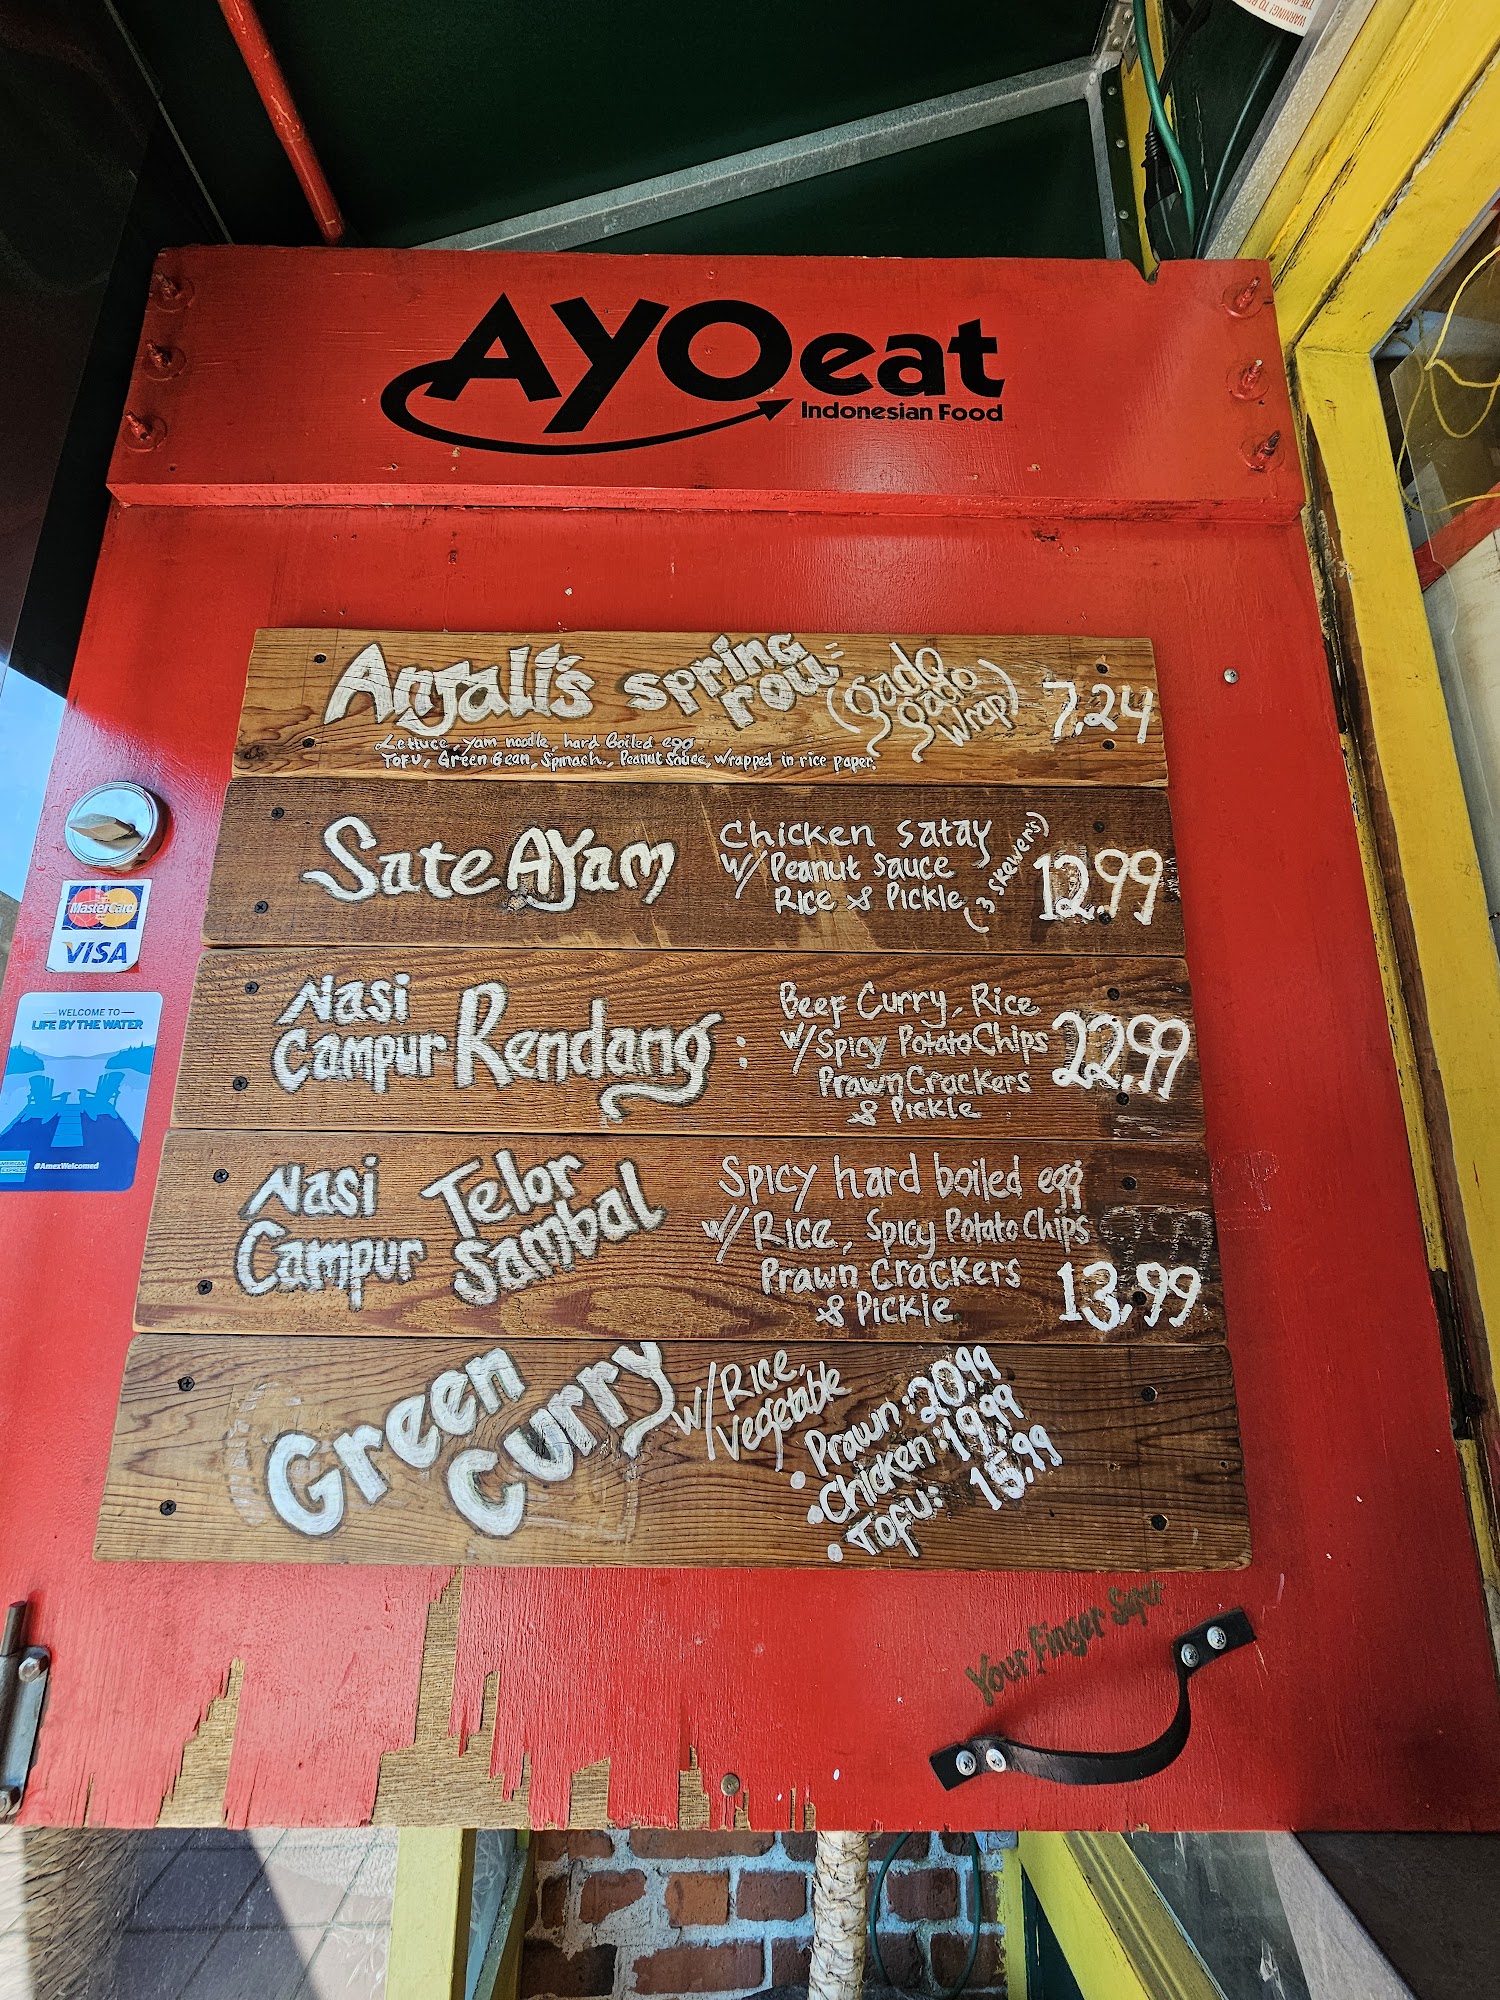 WARNING! TO BE
THE
AYOeat
Indonesian Food
Anjali's spring roll = (gado gado wrap) 7.24
Lettuce, yam noodle, hard boiled egg
Tofu, Green Bean, Spinach, Peanut Sauce, Wrapped in rice paper.
Sate AYam
Chicken satay
w/ Peanut Sauce
Rice & Pickle (3 skewers)
12.99
MasterCard
VISA
WELCOME TO
LIFE BY THE WATER
AMERICAN
EXPRESS
#AmexWelcomed
Nasi
Campur Rendang :
Beef Curry, Rice
w/ Spicy Potato Chips
Prawn Crackers
& Pickle
22.99
Nasi
Campur
Telor
Sambal
Spicy hard boiled egg
w/ Rice, Spicy Potato Chips
Prawn Crackers
& Pickle
13.99
Green
Curry
w/ Rice,
Vegetable
• Prawn: 20.99
• Chicken: 19.99
• Tofu: 15.99
Your Finger